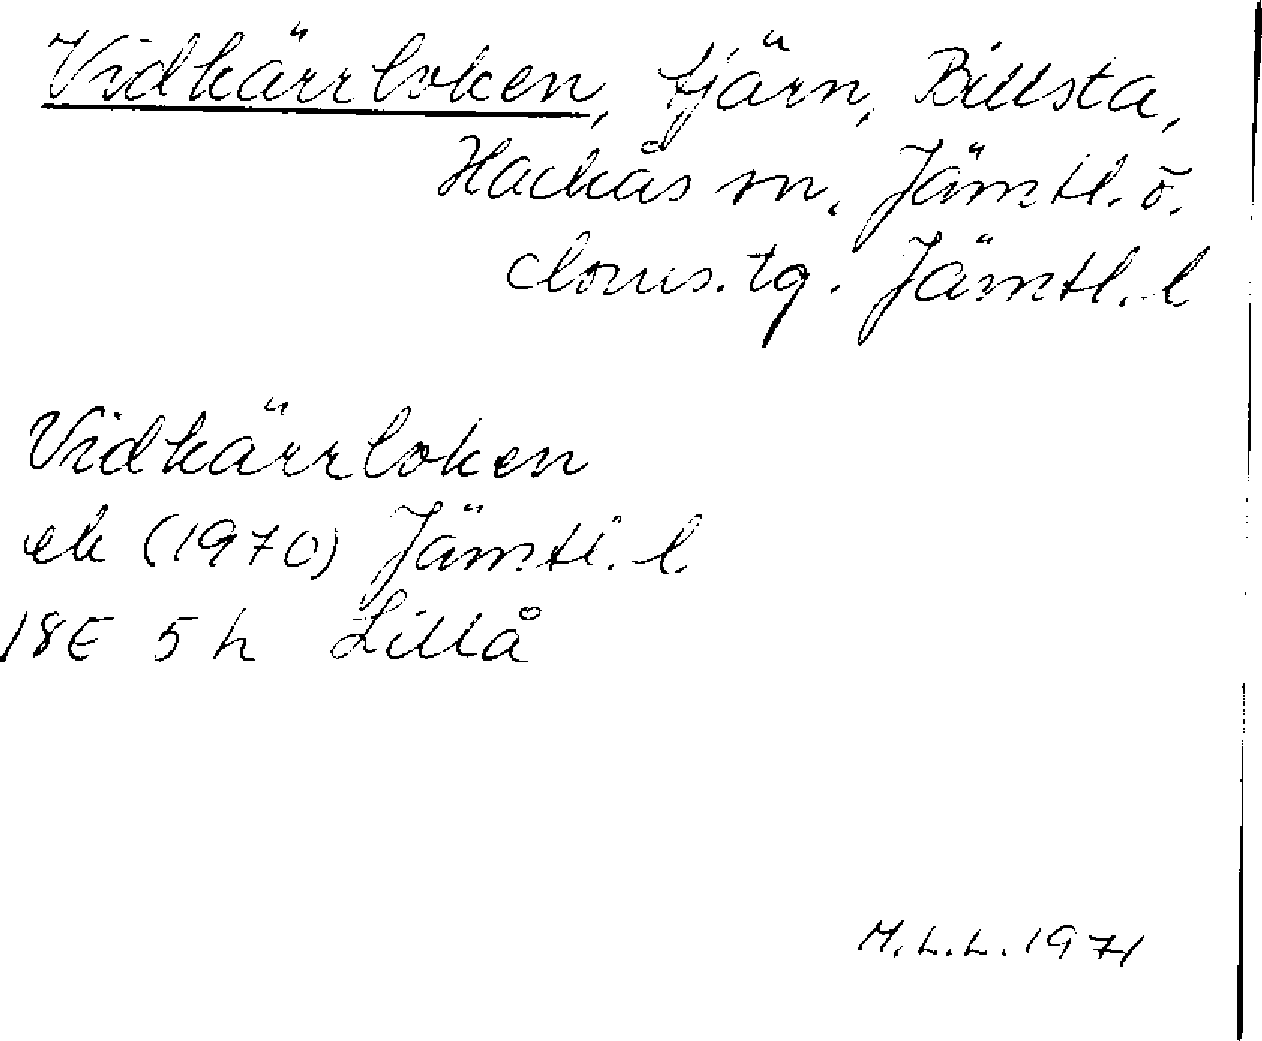 Vidkärrloken, tjärn, Billsta,
Hackås sn, Jämtl. ö.
doms. tg. Jämtl. l
Vidkärrloken
ek (1970) Jämtl. l.
18E 5h Lillå
M.L.L. 1971